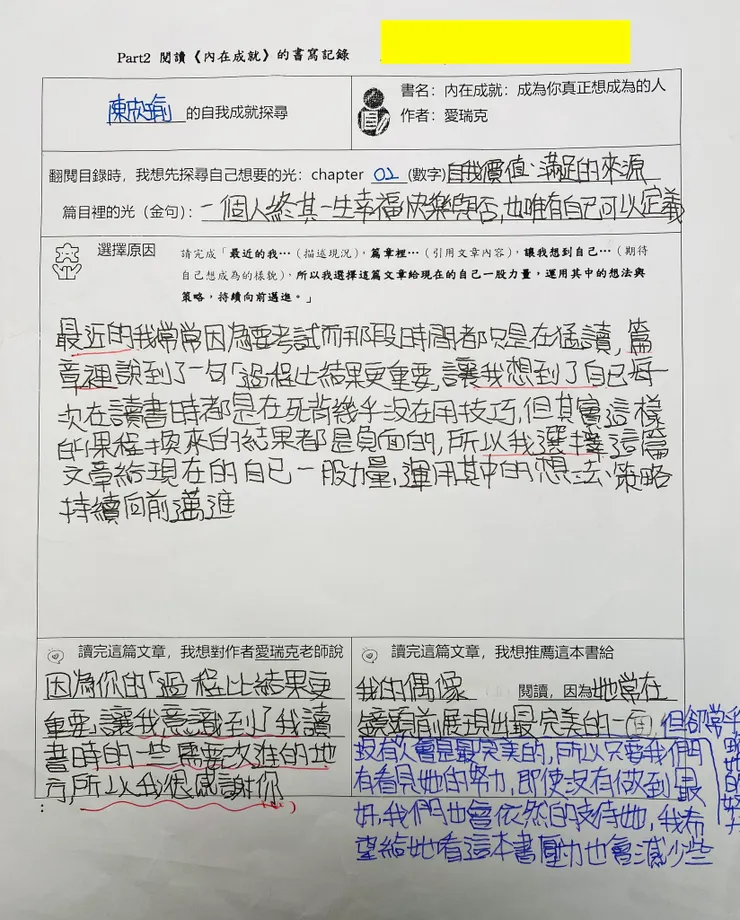 Part2 閱讀《內在成就》的書寫記錄
陳欣瑜 的自我成就探尋
書名：內在成就：成為你真正想成為的人
作者：愛瑞克
翻閱目錄時，我想先探尋自己想要的光：chapter 02 (數字)自我價值、滿足的來源
篇目裡的光（金句）：一個人終其一生幸福快樂與否，也唯有自己可以定義
選擇原因
請完成「最近的我…（描述現況），篇章裡…（引用文章內容），讓我想到自己…（期待
自己想成為的樣貌），所以我選擇這篇文章給現在的自己一股力量，運用其中的想法與
策略，持續向前邁進。」
最近的我常常因為要考試而那段時間都只是在猛讀，篇
章裡說到了一句「過程比結果更重要，讓我想到了自己每一
次在讀書時都是在死背幾乎沒在用技巧，但其實這樣
的課程換來的結果都是負面的，所以我選擇這篇
文章給現在的自己一股力量，運用其中的想法、策略
持續向前邁進
讀完這篇文章，我想對作者愛瑞克老師說
因為你的「過程比結果更
重要，讓我意識到了我讀
書時的一些需要改進的地
方，所以我很感謝你
讀完這篇文章，我想推薦這本書給
我的偶像 閱讀，因為她常在
鏡頭前展現出最完美的一面，但卻常
沒有人會是最完美的，所以只要我們
有看見她的努力，即使沒有做到最
好，我們也會依然的支持她，我希
望給她看這本書壓力也會減少些